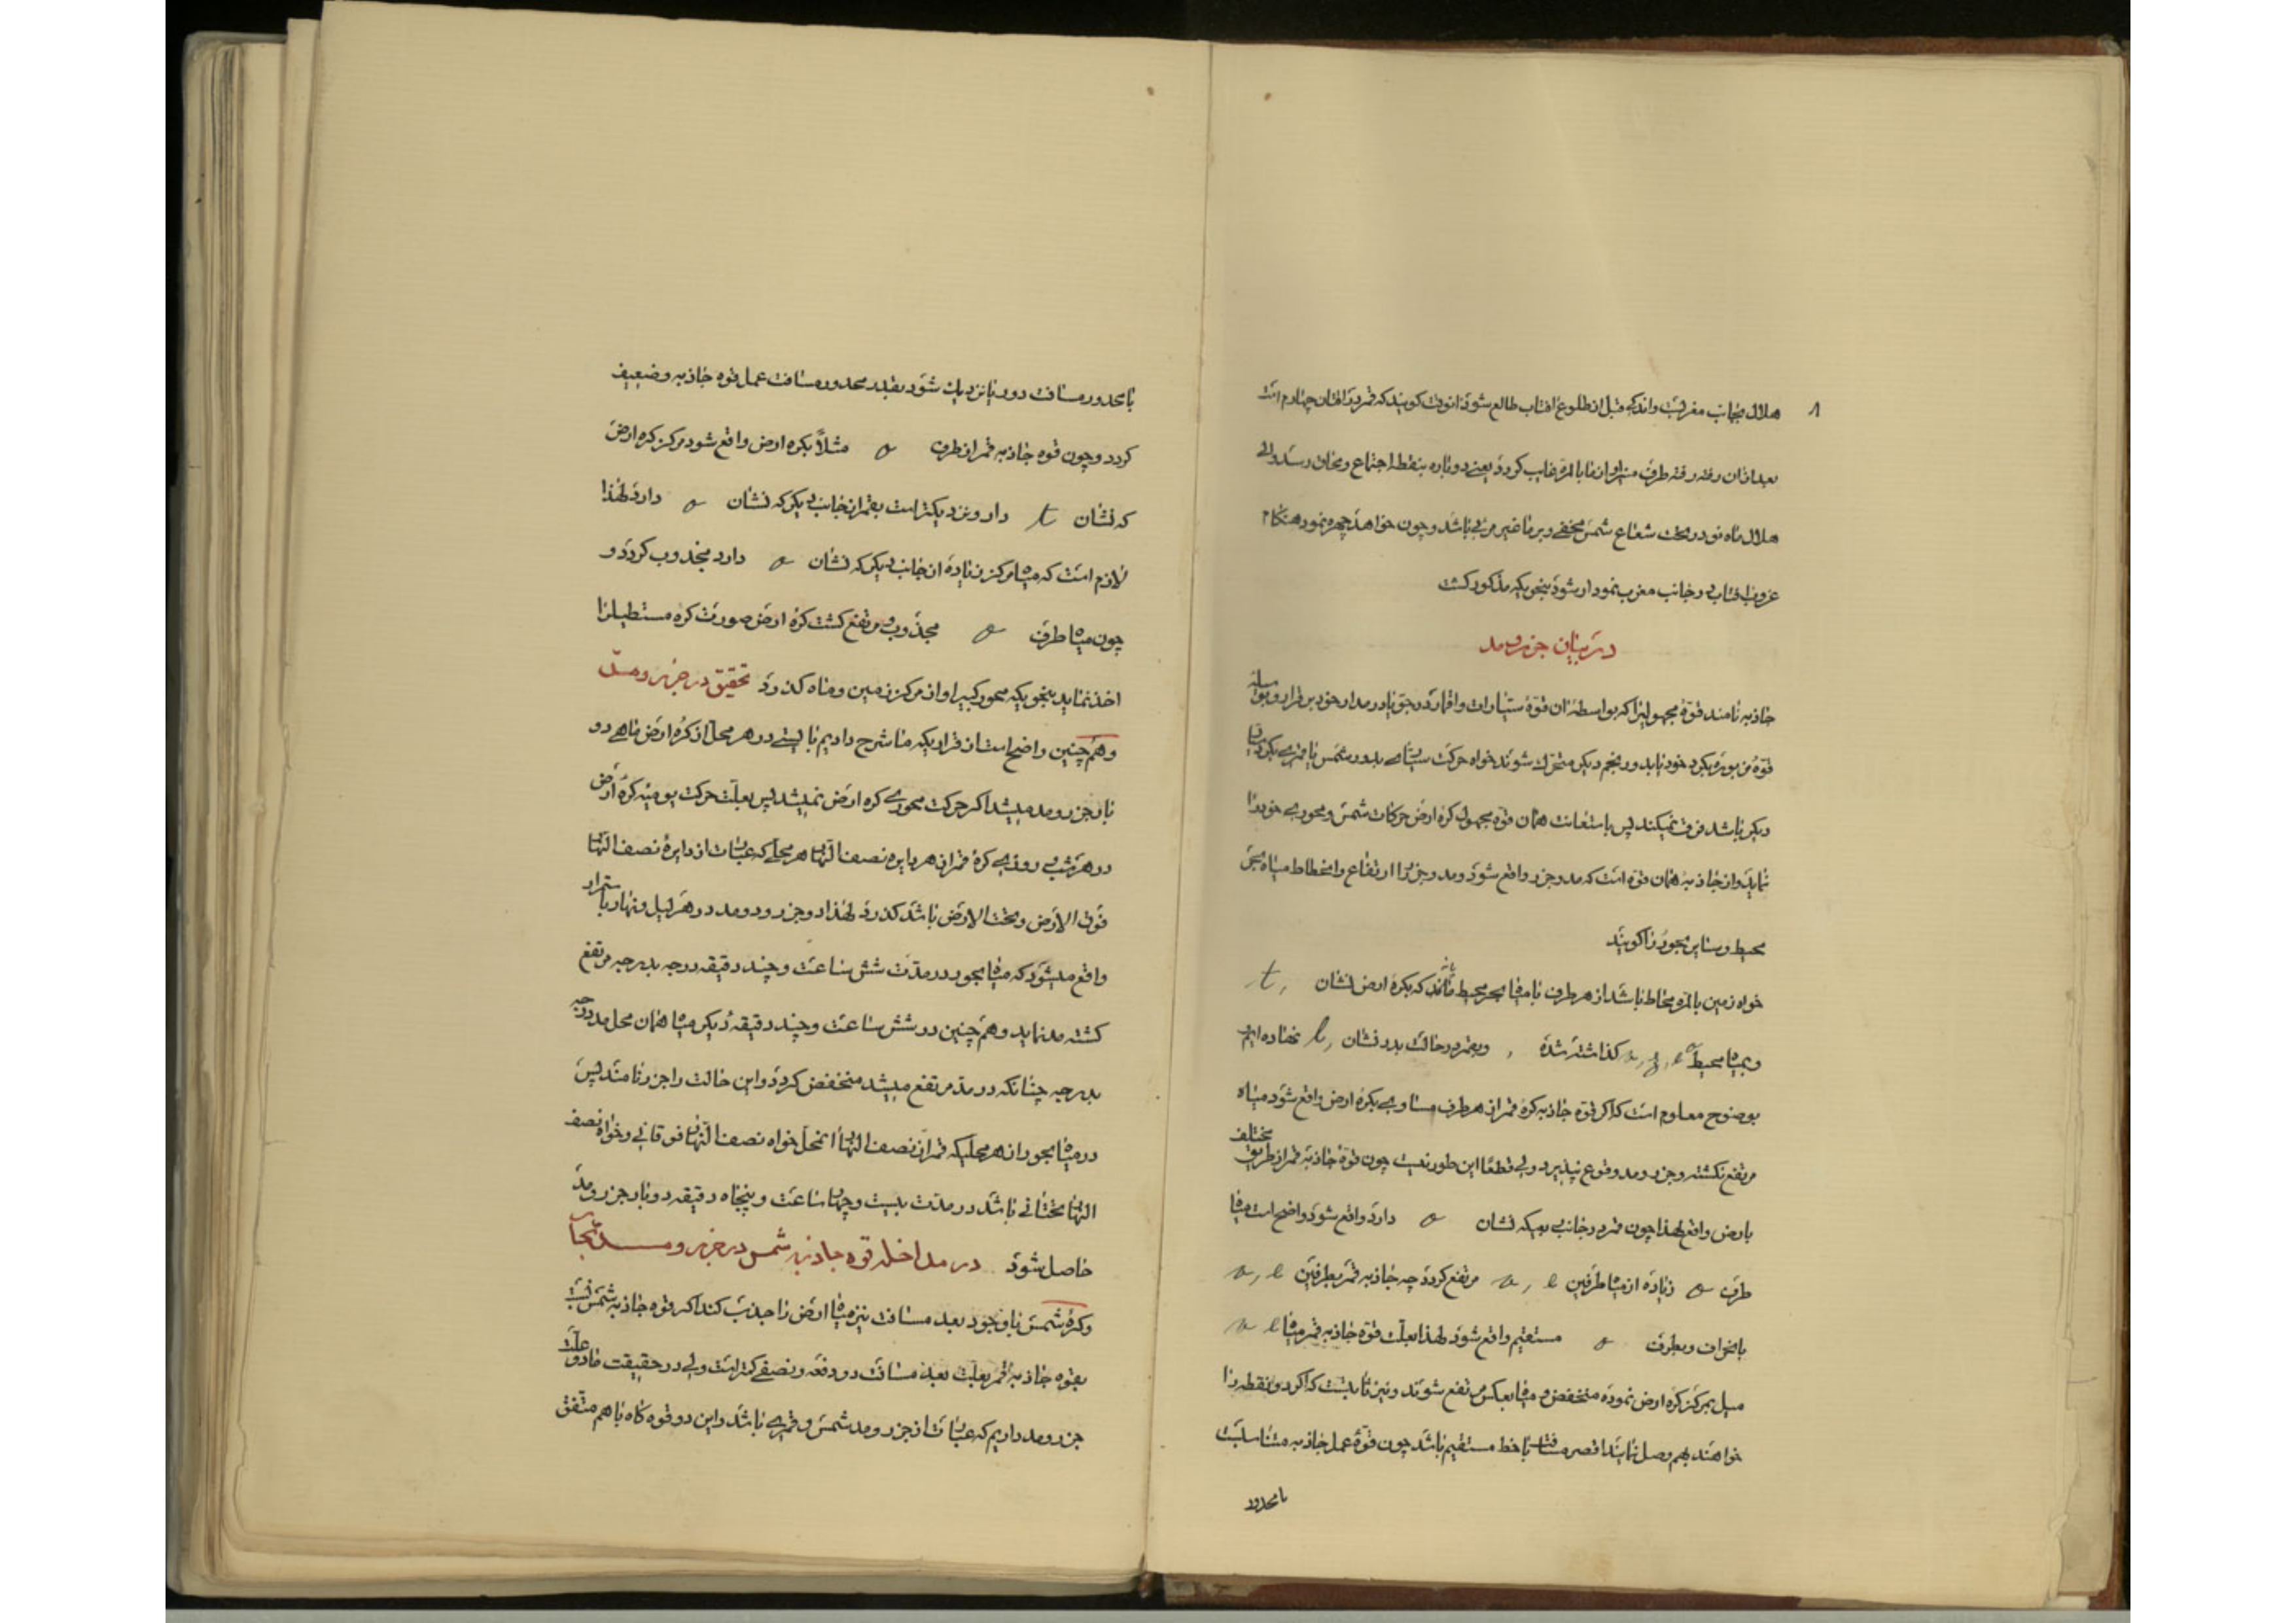 ۸
هلال بجانب مغربست واندکی قبل از طلوع افتاب طالع شود انوقت کویند که قمر در افتان چهارم است
بعد ازان رفته رفته طرف منیر او از ما بالمره غایب کردد یعنی دوباره بنقطه اجتماع ومحاق رسد ولی
هلال ماه نو در تحت شعاع شمس مخفی وبر ما غیر مرئی باشد وچون خواهد چهره نمود هنکام
غروب افتاب در جانب مغرب نمودار شود بنحویکه مذکور کشت
در بیان جزر و مد
جاذبه نامند قوۀ مجهولیرا که بواسطه ان قوۀ سیارات واقمار در جو یا در مدار خود برقرار وبواسطه
قوۀ مزبوره بکرد خود یا بدور نجم دیکر متحرک شوند خواه حرکت سیاره بدور شمس یا قمری بکرد سیاره
دیکر باشد فرقت نمیکند پس باستعانت همان قوه مجهول کره ارض حرکات شمس ومحوری خود را
نماید واز جاذبه همان قوه است که مد وجزر واقع شود ومد وجزر را ارتفاع وانحطاط میاه بحر
محیط وسایر بحور را کویند
خواه زمین بالمره محاط باشد از هر طرف بامیاه بحر محیط مانند که بکره ارض نشان , t
وبمیاه محیط a , g , e کذاشته شده , وبقمر در حالت بدر نشان , l نهاده ایم
بوضوح معلوم است که اکر قوه جاذبه کره قمر از هر طرف مساوی بکره ارض واقع شود میاه
مرتفع نکشته وجزر ومد وقوع نپذیرد ولی قطعا این طور نیست چون قوۀ جاذبه قمر از طریق مختلف
بارض واقع لهذا چون قمر در جانبی بود که نشان a دارد واقع شود واضح است میاه
طرف a زیاده از میاه طرفین a , e مرتفع کردد چه جاذبه قمر بطرفین a , e
بانحراف وبطرف a مستقیم واقع شود لهذا بعلت قوۀ جاذبه قمر میاه a e
میل بمرکز کره ارض نموده منخفض و میاه بعکس مرتفع شوند ونیز ثابتست که اکر دو نقطه را
خواهند بهم وصل نمایند اقصر مسافت با خط مستقیم باشد چون قوۀ عمل جاذبه متناسبست
بامحدود
بامحدود مسافت دور یا نزدیک شود بقدر محدود مسافت عمل قوه جاذبه وضعیف
کردد وچون قوه جاذبه قمر از طرف a مثلاً بکره ارض واقع شود مرکز کره ارض
که نشان t دارد نزدیکتر است بقمر از جانب دیکر که نشان a دارد لهذا
لازم است که میاه مرکز زیاده از جانب دیکر که نشان a دارد مجذوب کردد و
چون میاه طرف a مجذوب ومرتفع کشت کره ارض صورت کره مستطیل را
اخذ نماید بنحویکه محور کبیر او از مرکز زمین وماه کذرد تحقیق در جزر ومد
وهم چنین واضح است از قراریکه ما شرح دادیم بایستی در هر محل از کره ارض ماهی دو
بار جزر ومد میشد اکر حرکت محوری کره ارض نمیشد پس بعلت حرکت یومیه کره ارض
در هر شب وروزی کره قمر از هر دایره نصف النهار هر محلی که عبارت از دایره نصف النهار
فوق الارض وتحت الارض باشد کذرد لهذا دو جزر ودو مد در هر لیل ونهار باستمرار
واقع میشود که میاه بحور در مدت شش ساعت وچند دقیقه درجه بدرجه مرتفع
کشته مد نماید وهم چنین در شش ساعت وچند دقیقه دیکر میاه همان محل مد درجه
بدرجه چنانکه در مد مرتفع میشد منخفض کردد واین حالت را جزر نامند پس
در میاه بحور از هر محلیکه قمر از نصف النهار انمحل خواه نصف النهار فوقانی وخواه نصف
النهار تحتانی باشد در مدت بیست وچهار ساعت وپنجاه دقیقه دو بار جزر ومد
حاصل شود در مداخله قوه جاذبه شمس در جزر ومد بحار
وکره شمس با وجود بعد مسافت نیز میاه ارض را جذب کند اکر قوه جاذبه شمس نسبت
بقوه جاذبه قمر بعلت بعد مسافت دو دفعه ونصفی کمتر است ولی در حقیقت ما دو علت
جزر ومد داریم که عبارت از جزر ومد شمسی وقمری باشد واین دو قوه کاه با هم متفق